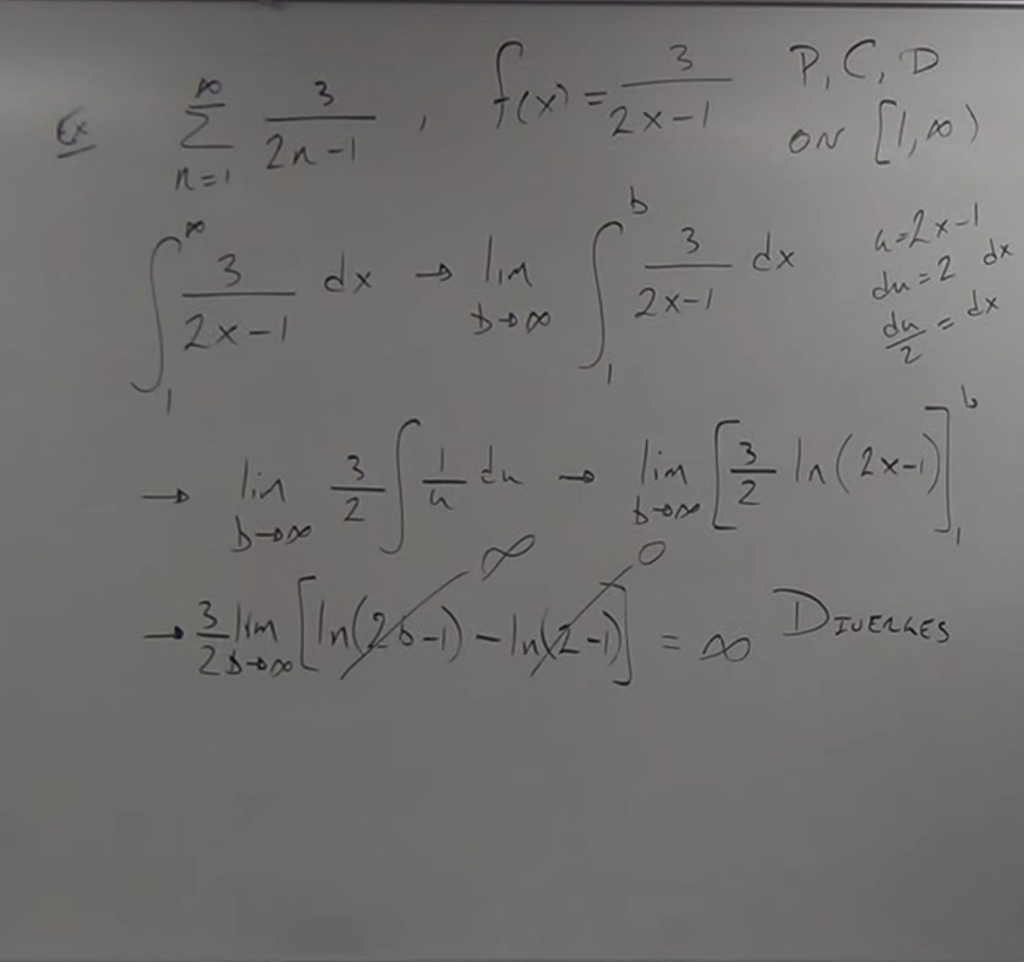 Ex ∑_{n=1}^{∞} 3/(2n-1) , f(x) = 3/(2x-1) P, C, D
ON [1, ∞)
∫_1^∞ 3/(2x-1) dx → lim_{b→∞} ∫_1^b 3/(2x-1) dx
u=2x-1
du=2 dx
du/2 = dx
→ lim_{b→∞} 3/2 ∫ 1/u du → lim_{b→∞} [3/2 ln(2x-1)]_1^b
∞ 0
→ 3/2 lim_{b→∞} [ln(2b-1) - ln(2-1)] = ∞ DIVERGES